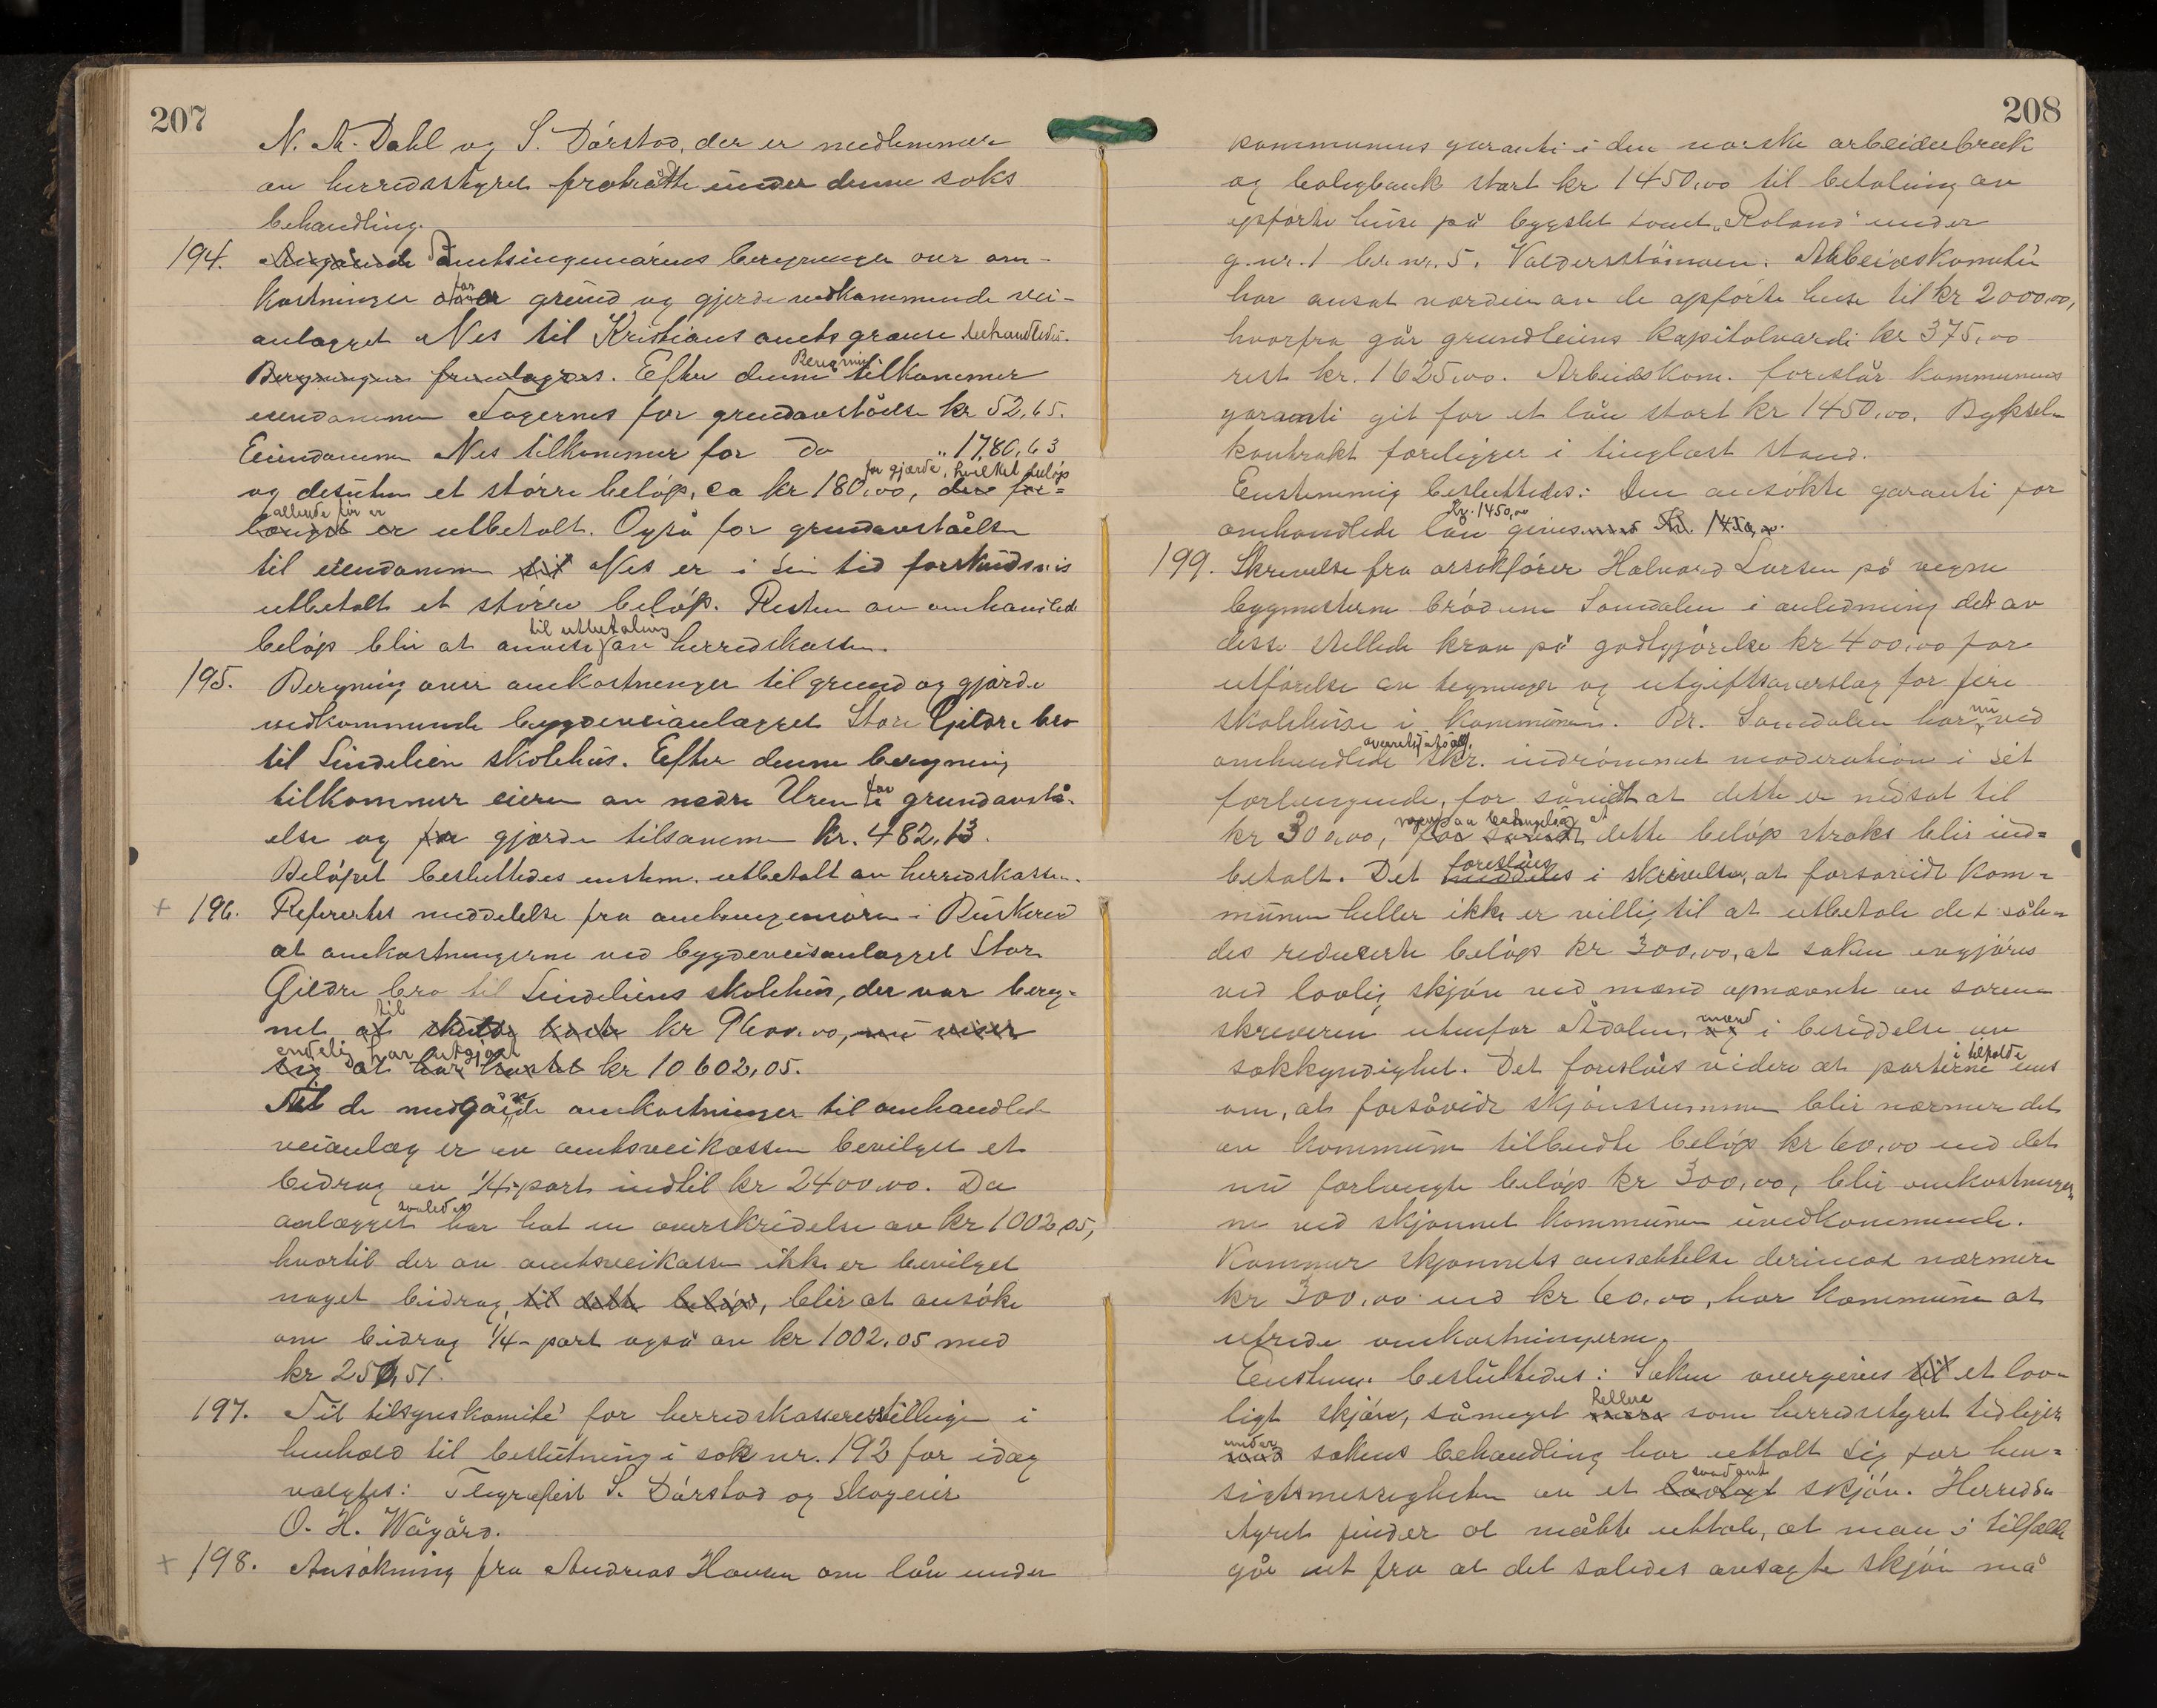 207
N. A. Dahl og S. Dårstad, der er medlemmer
av herredsstyret fratrådte under denne saks
behandling.
194. Angående Amtsingeniørens beregninger over om-
kostninger over for grund og gjerde vedkommende vei-
anlægget Nes til Kristians amts grænse behandledes.
Beregningen fremlagdes. Efter denne Beregning tilkommer
eiendommen Fagernes for grundavståelse kr 52,65.
Eiendommen Nes tilkommer for do " 1780,63
og desuten et større beløp, ca kr 180,00, for gjærde, hvilket beløp
allerede før er utbetalt. Også for grundavståelse
til eiendommen til Nes er i sin tid forskudsvis
utbetalt et større beløp. Resten av omhandlede
beløp blir at anvise til utbetaling av herredskassen.
195. Beregning over omkostninger til grund og gjærde
vedkommende bygdeveianlægget Store Gjeldre bro
til Lindelien skolehus. Efter denne beregning
tilkommer eieren av nedre Uren for grundavstå-
else og for gjærde tilsammen kr. 482,13.
Beløpet besluttedes enstem. utbetalt av herredskassen.
+ 196. Refereertes meddelelse fra amtsingeniøren i Buskerud
at omkostningerne ved bygdeveisanlægget Store
Gjeldre bro til Lindeliens skolehus, der var bereg-
net at til skulde koste kr 9600.00, nu viser
sig at har kostet endelig har utgjort kr 10602,05.
Til de medgåede omkostninger til omhandlede
veianlæg er av amtsveikassen bevilget et
bidrag av 1/4-part indtil kr 2400,00. Da
anlægget således har hat en overskridelse av kr 1002,05,
hvortil der av amtsveikassen ikke er bevilget
noget bidrag, til dette beløp, blir at ansøke
om bidrag 1/4-part også av kr 1002,05 med
kr 250,51.
197. Til tilsynskomite for herredskasserestillingen i
henhold til beslutning i sak nr. 192 for idag
valgtes: Telegrafist S. Dårstad og skogeier
O. H. Wågård.
+ 198. Ansøkning fra Andreas Hansen om lån under
208
kommunens garanti i den norske arbeiderbruk
og boligbank stort kr 1450,00 til betaling av
opførte huse på bygslet tomt "Roland" under
g.nr. 1 br.nr. 5. Valdersstømoen. Arbeidskomiteen
har ansat værdien av de opførte huse til kr 2000,00,
hvorfra går grundleiens kapitalværdi kr 375,00
rest kr. 1625,00. Arbeidskom. foreslår kommunens
garanti git for et lån stort kr 1450,00. Bygsel-
kontrakt foreligger i tinglæst stand.
Enstemmig besluttedes: Den ansøkte garanti for
omhandlede lån kr. 1450,00 gives med kr. 1450,00.
199. Skrivelse fra orsakfører Halvard Larsen på vegne
bygmesterne brødrene Somdalen i anledning det av
disse stillede krav på godtgjørelse kr 400,00 for
utførelse av tegninger og utgiftsoverslag for fire
skolehuse i kommunen. Br. Somdalen har nu ved
omhandlede skr. indrømmet moderation i sit
forlangende, for såvidt at dette er nedsat til
kr 300,00, for såvidt dette beløp straks blir ind-
betalt. Det meddeles foreslåes i skrivelsen, at forsåvidt kom-
munen heller ikke er villig til at utbetale det såle-
des reducerte beløp kr 300,00, at saken avgjøres
ved lovlig skjøn ved mænd opnævnte av soren-
skriveren utenfor Ådalen, og mænd i besiddelse av
sakkyndighet. Det foreslåes videre at parterne i tilfælde enes
om, at forsåvidt skjønssummen blir nærmere det
av kommunen tilbudte beløp kr 60,00 end det
nu forlangte beløp kr 300,00, blir omkostninger
ne ved skjønnet kommunen uvedkommende.
Kommer skjønnets ansættelse derimot nærmere
kr 300,00 end kr 60,00, har kommunen at
utrede omkostningerne.
Enstem. besluttedes: Saken overgives til et lov-
ligt skjøn, såmeget mere hellere som herredsstyret tidligere
under sakens behandling har uttalt sig for hen-
sigtsmessigheten av et lovligt saadant skjøn. Herreds-
styret finder at måtte uttale, at man i tilfælde
går ut fra at det således ansagte skjøn må